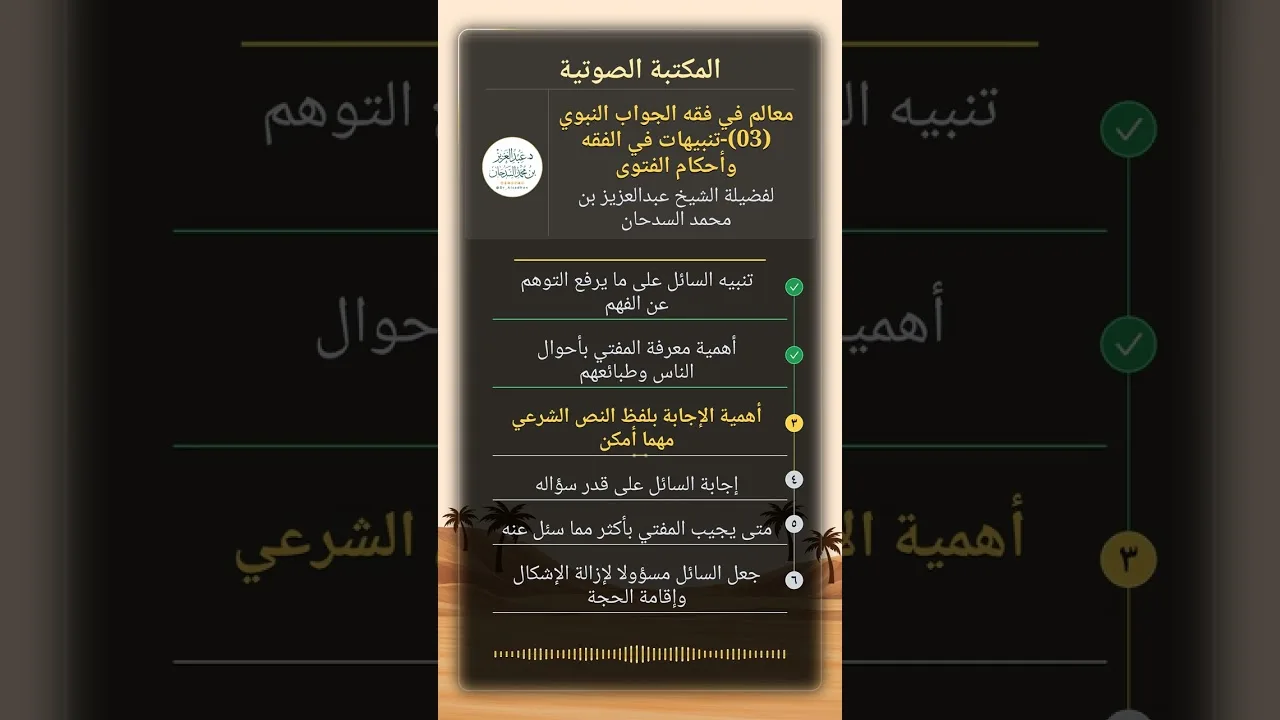 المكتبة الصوتية
معالم في فقه الجواب النبوي
(03)-تنبيهات في الفقه
وأحكام الفتوى
لفضيلة الشيخ عبدالعزيز بن
محمد السدحان
د. عبدالعزيز
بن محمد السدحان
تنبيه السائل على ما يرفع التوهم
عن الفهم
أهمية معرفة المفتي بأحوال
الناس وطبائعهم
٣
أهمية الإجابة بلفظ النص الشرعي
مهما أمكن
٤
إجابة السائل على قدر سؤاله
٥
متى يجيب المفتي بأكثر مما سئل عنه
٦
جعل السائل مسؤولا لإزالة الإشكال
وإقامة الحجة
تنبيه
التوهم
أهمية
حوال
٣
أهمية الإ
الشرعي